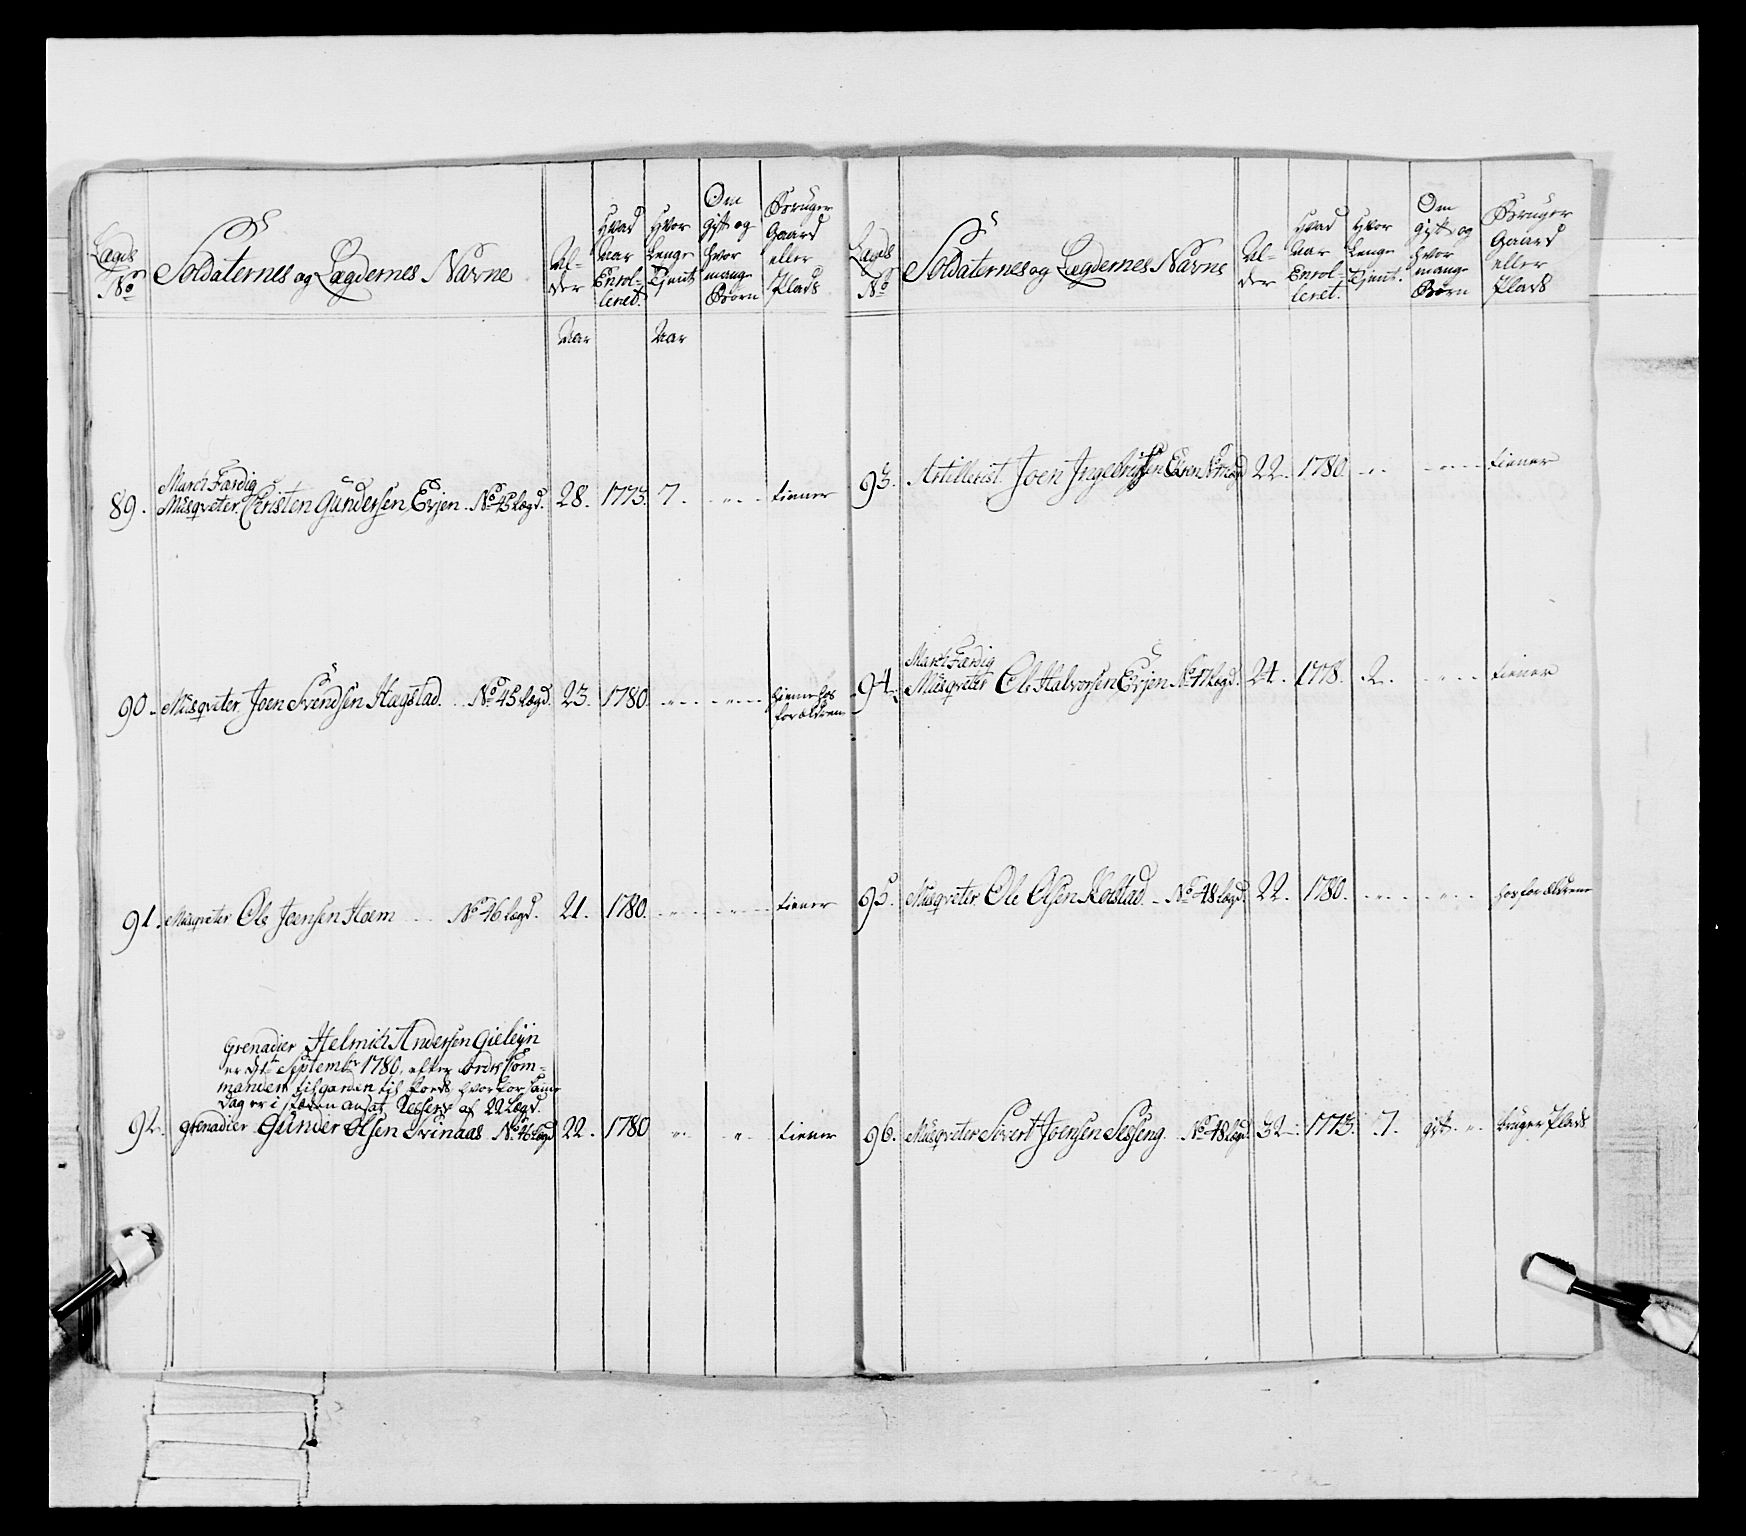 Lægds No
Soldaternes og Lægdernes Navne
Al-
der
Hvad
Aar
Enrol-
leret.
Hvor
Lenge
Tjent
Om
gift og
hvor
mange
Børn
Bruger
Gaard
eller
Plads
Aar
Aar
March Færdig
89. Musqveter Christen Gundersen Evjen. No 45 lægd. 28. 1773. 7. tiener
90. Musqveter Joen Svendsen Hagstad. No 45 lægd. 23. 1780. tiener hos
forældrene
91. Musqveter Ole Joensen Hoem No 46 lægd. 21. 1780. tiener
Grenadier Helmich Andersen Gieleijn
er d. 1t Septembr 1780, efter Ordre Com-
manderet til garden til fods, hvorfor samme
Dag er i stæden ansat Reserv af 22 Lægd.
92. Grenadier Gunder Olsen Svinaas No 46 lægd 22. 1780 tiener
Lægds No
Soldaternes og Lægdernes Navne
Al-
der
Hvad
Aar
Enrol-
leret.
Hvor
Lenge
Tjent.
Om
gift og
hvor
mange
Børn
Bruger
Gaard
eller
Plads
93. Artillerist Joen Ingebrigtsen Evjen lægd 22. 1780. tiener
March Færdig
94. Musqveter Ole Halvorsen Evjen No 47 lægd. 24. 1778. 2. tiener
95. Musqveter Ole Olsen Kolstad. No 48 lægd. 22. 1780. hos forældrene
96. Musqveter Sivert Joensen Sesseng. No 48 lægd. 32. 1773. 7. gift. bruger Plads